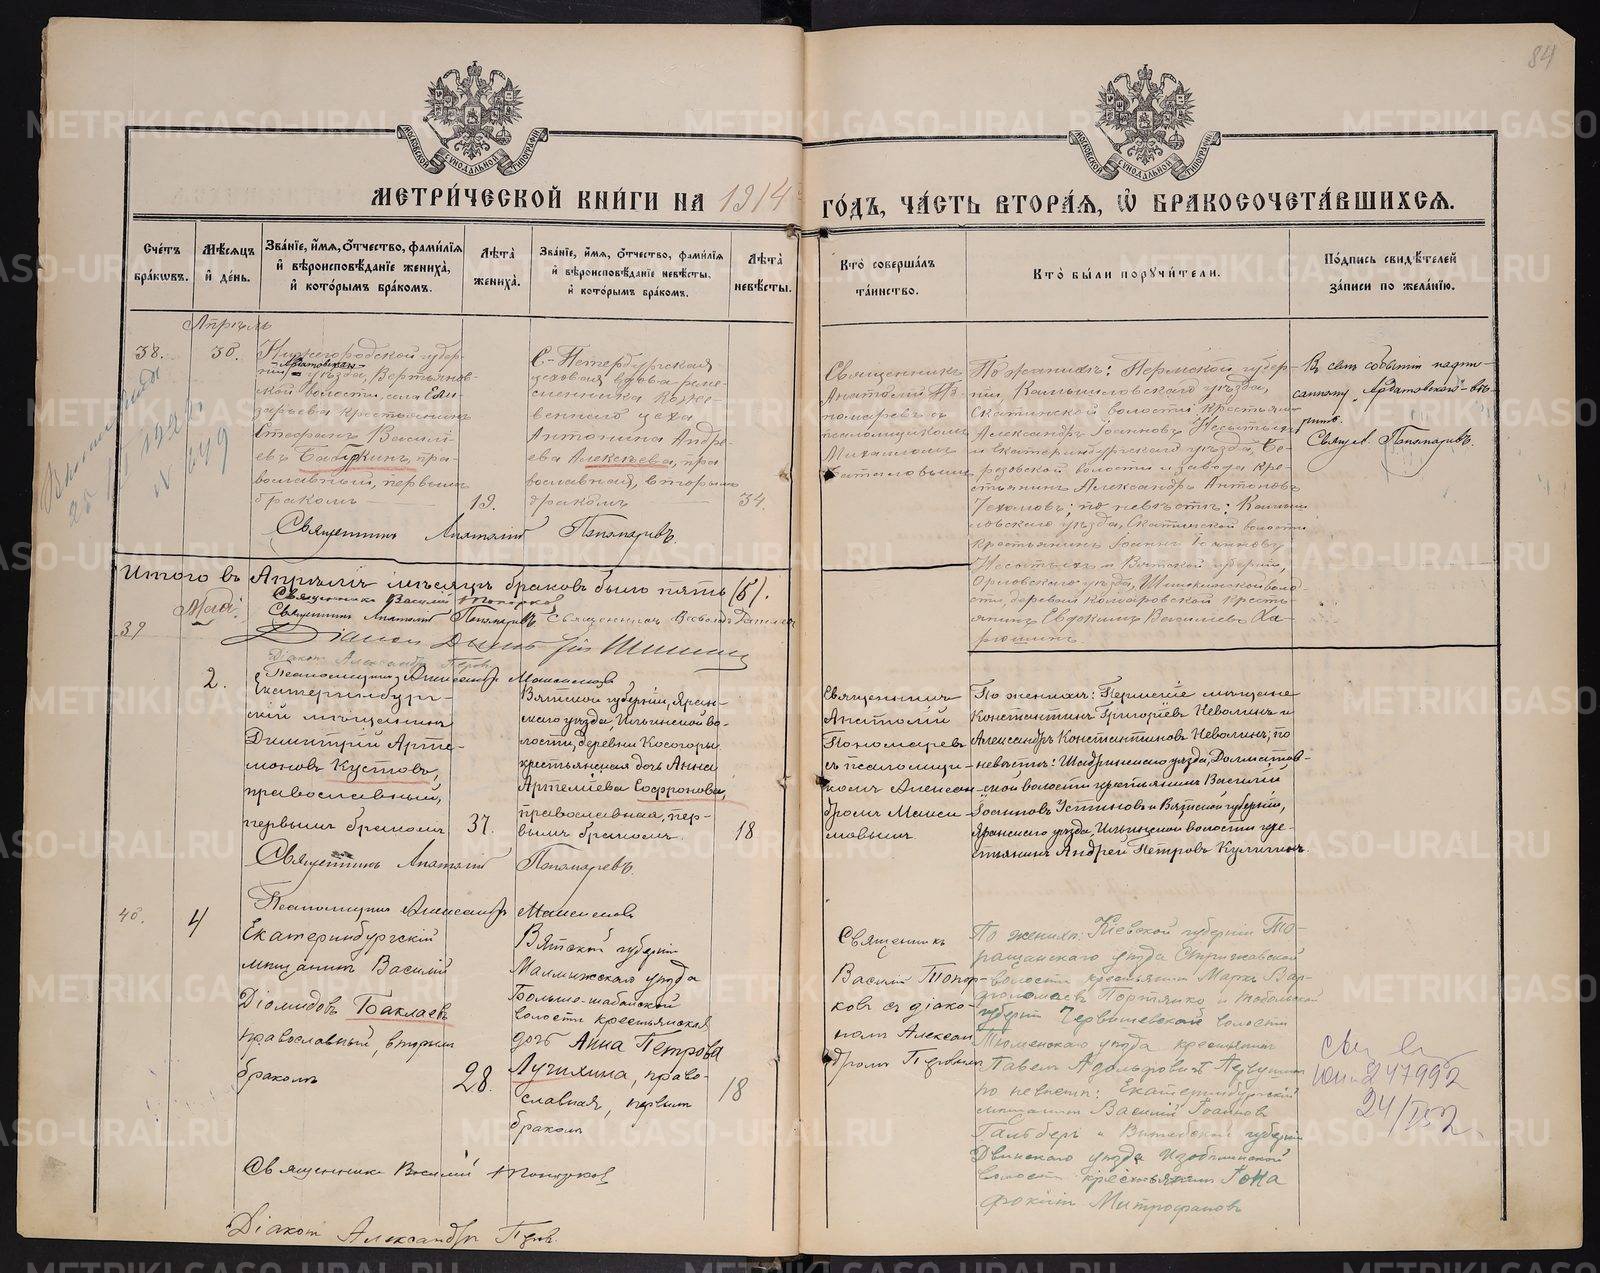 84
МЕТРИ́ЧЕСКОЙ КНИ́ГИ НА 1914
ГО́ДЪ, ЧА́СТЬ ВТОРА́Я, Ѽ БРАКОСОЧЕТА́ВШИХСЯ.
МОСКОВСКОЙ СѴНОДАЛЬНОЙ ТИПОГРАФІИ
МОСКОВСКОЙ СѴНОДАЛЬНОЙ ТИПОГРАФІИ
Сче́тъ бра́ковъ.
Мѣ́сяцъ и҆ де́нь.
Зва́нїе, и҆́мя, ѻ҆́тчество, фами́лїя и҆ вѣроисповѣ́данїе жениха̀, и҆ кото́рымъ бра́комъ.
Лѣ́та жениха̀.
Зва́нїе, и҆́мя, ѻ҆́тчество, фами́лїя и҆ вѣроисповѣ́данїе невѣ́сты, и҆ кото́рымъ бра́комъ.
Лѣ́та невѣ́сты.
Кто̀ соверша́лъ та́инство.
Кто̀ бы́ли поручи́тели.
По́дпись свидѣ́телей за́писи по жела́нїю.
Апрѣль
38.
30.
Нижегородской губер-
ніи Ардатовскаго уѣзда, Вертьянов-
ской волости, села Ели-
зарьева крестьянинъ
Стефанъ Василі-
евъ Бабкинъ, пра-
вославный, первымъ
бракомъ
19.
С-Петербургская
цеховая вдова реме-
сленника
цеха
Антонина Андре-
ева Алексѣева, пра
вославная, вторымъ
бракомъ
34.
Священникъ
Анатолій По-
номаревъ съ
псаломщикомъ
Михаиломъ
По женихѣ: Пермской губер-
ніи, Камышловскаго уѣзда,
Скатинской волости крестьяне
Александръ Іоанновъ Несытыхъ
и Екатеринбургскаго уѣзда, Бе-
резовской волости и завода кре-
стьянинъ Александръ Антоновъ
по невѣстѣ: Камыш-
ловскаго уѣзда, Скатинской волости
крестьянинъ Іоаннъ Іоанновъ
Несытыхъ и Вятской губерніи,
Орловскаго уѣзда, волос-
ти, деревни Комаровской кресть-
янинъ Евдокимъ Василіевъ Ха-
рюшинъ
В сем событии надпи-
санному "Ардатовскаго" вѣ-
рить.
Свящ. Пономаревъ.
Священникъ Анатолій Пономаревъ.
Итого въ Апрѣлѣ мѣсяцѣ браковъ было пять (5).
Священникъ Василій Топорковъ
Священникъ Анатолій Пономаревъ Священникъ Всеволодъ
Діаконъ Шишкинъ
Діаконъ Александръ Перовъ
Псаломщикъ Александръ Максимовъ
Май
39
2.
Екатеринбург-
скій мѣщанинъ
Димитрій Арте-
моновъ Кустовъ,
православный,
первымъ бракомъ
37.
Вятской губерніи, Яран-
скаго уѣзда, Ильинской во-
лости, деревни Косогоры
крестьянская дочь Анна
Артеміева Софронова,
православная, пер-
вымъ бракомъ.
18
Священникъ
Анатолій
Пономаревъ
съ псаломщи-
комъ Алексан-
дромъ Макси-
мовымъ
По женихѣ: Пермскіе мѣщане
Константинъ Григоріевъ Неволинъ и
Александръ Константиновъ Неволинъ; по
невѣстѣ: Шадринскаго уѣзда, Долматов-
ской волости крестьянинъ Василій
Іоанновъ Устиновъ и Вятской губерніи,
Яранскаго уѣзда, Ильинской волости кре-
стьянинъ Андрей Петровъ Куличинъ.
Священникъ Анатолій Пономаревъ.
Псаломщикъ Александръ Максимовъ
40.
4
Екатеринбургскій
мѣщанинъ Василій
Діомидовъ Баклаевъ
православный, вторымъ
бракомъ
28.
Вятской губерніи
Малмыжскаго уѣзда
Больше-шабанской
волости крестьянская
дочь Анна Петрова
Лучихина, право-
славная, первымъ
бракомъ
18
Священникъ
Василій Топор-
ковъ съ діако-
номъ Алексан
дромъ Перовымъ
По женихѣ: Кіевской губерніи
Та-
ращанскаго уѣзда Стрижавской
волости крестьянинъ Маркъ Вар-
фоломеевъ Портянко и Тобольской
губерніи Червишевской волости
Тюменскаго уѣзда крестьянинъ
Павелъ Адольфовъ
по невѣстѣ: Екатеринбургскій
мѣщанинъ Василій Іоанновъ
Гальберъ и Витебской губерніи
Двинскаго уѣзда
волости крестьянинъ Іона
Митрофановъ
247992
Священникъ Василій Топорковъ
Діаконъ Александръ Перовъ.
METRIKI.GASO-URAL.RU